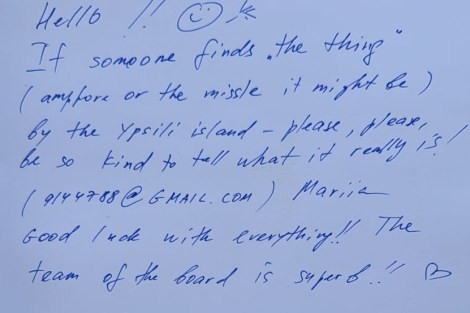 Hello !!
If someone finds „the thing"
(amphore or the missle it might be)
by the Ypsili island – please, please,
be so kind to tell what it really is!
(9144788@GMAIL.COM) Mariia
Good luck with everything!! The
team of the board is superb!!